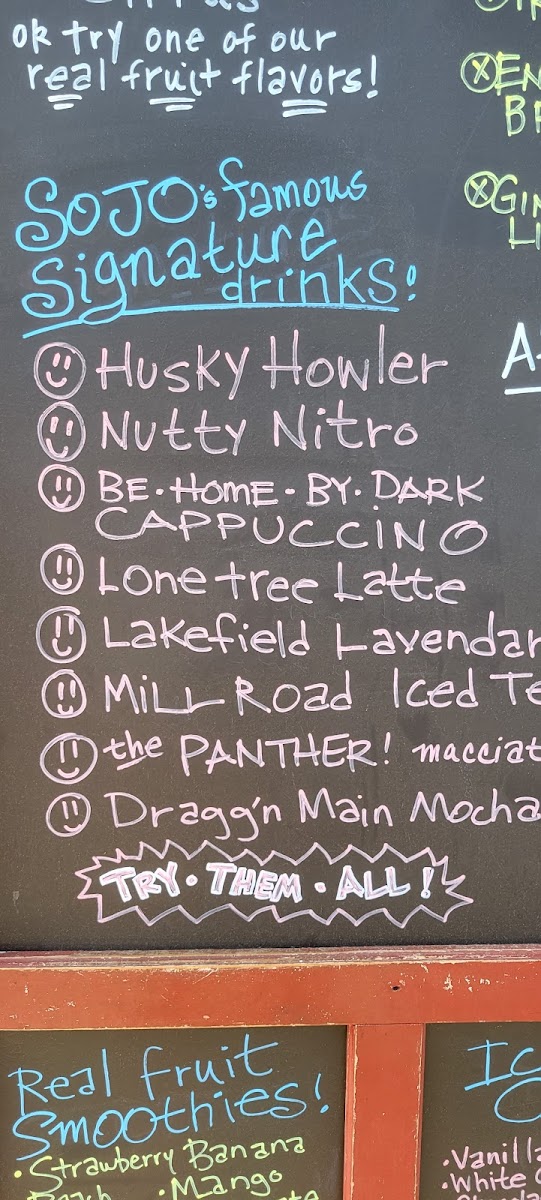 or try one of our
real fruit flavors!
SOJO's famous
Signature
drinks!
Husky Howler
Nutty Nitro
BE·HOME·BY·DARK
CAPPUCCINO
Lone tree Latte
Lakefield Lavendar
MILL ROAD Iced Te
the PANTHER! macciat
Dragg'n Main Mocha
TRY·THEM·ALL!
Real fruit
Smoothies!
· Strawberry Banana
· Mango
· Vanilla
· White